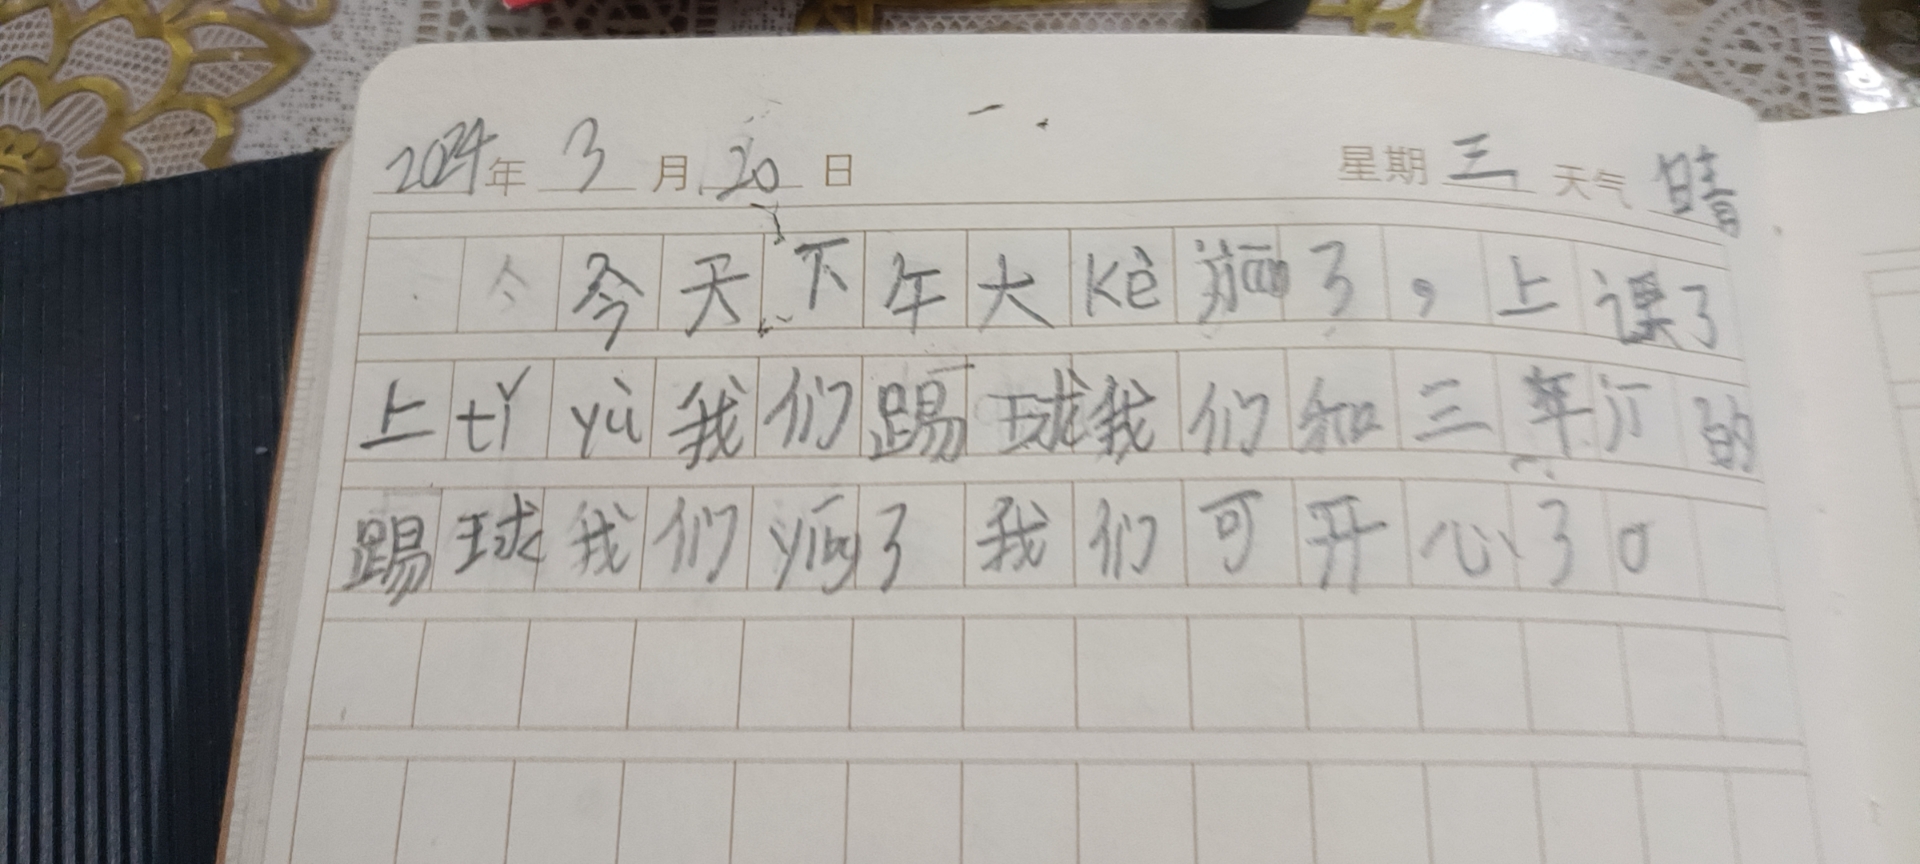 2024年 3月 20日 星期三 天气 晴
今今天下午大kè jiān了，上课了
上tǐ yù我们踢球我们和三年订的
踢球我们yíng了 我们可开心了。